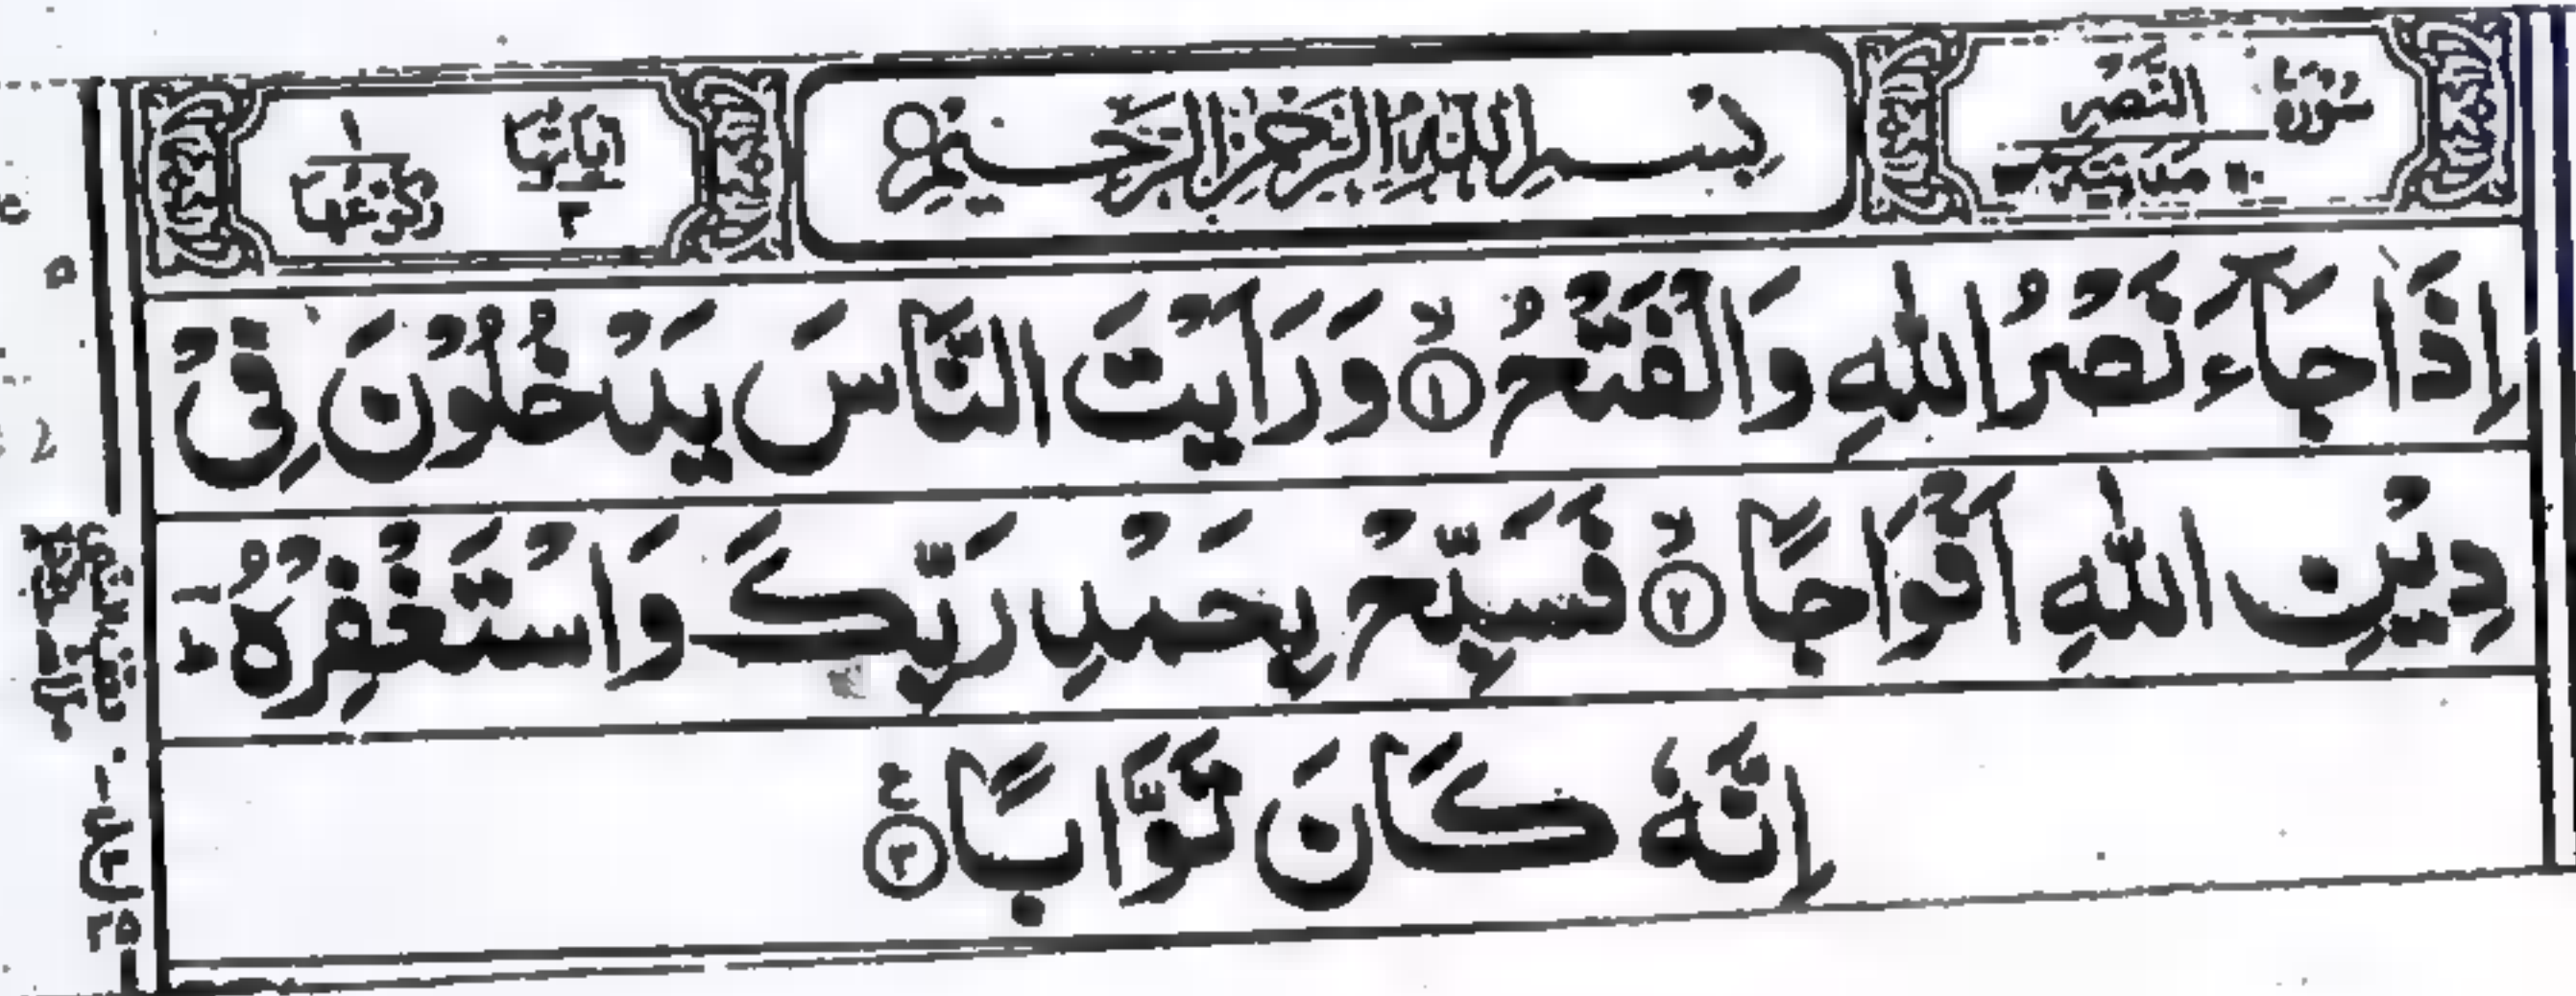 سُوْرَةُ النَّصْرِ مَدَنِيَّةٌ
بِسْمِ اللّٰهِ الرَّحْمٰنِ الرَّحِيْمِ
اٰيَاتُهَا ٣
رُكُوْعُهَا ١
اِذَا جَآءَ نَصْرُ اللّٰهِ وَالْفَتْحُ ۙ﴿١﴾ وَرَاَيْتَ النَّاسَ يَدْخُلُوْنَ فِيْ
دِيْنِ اللّٰهِ اَفْوَاجًا ۙ﴿٢﴾ فَسَبِّحْ بِحَمْدِ رَبِّكَ وَاسْتَغْفِرْهُ ؕ
اِنَّهٗ كَانَ تَوَّابًا ﴿٣﴾ ع
ع
٣
٣٥